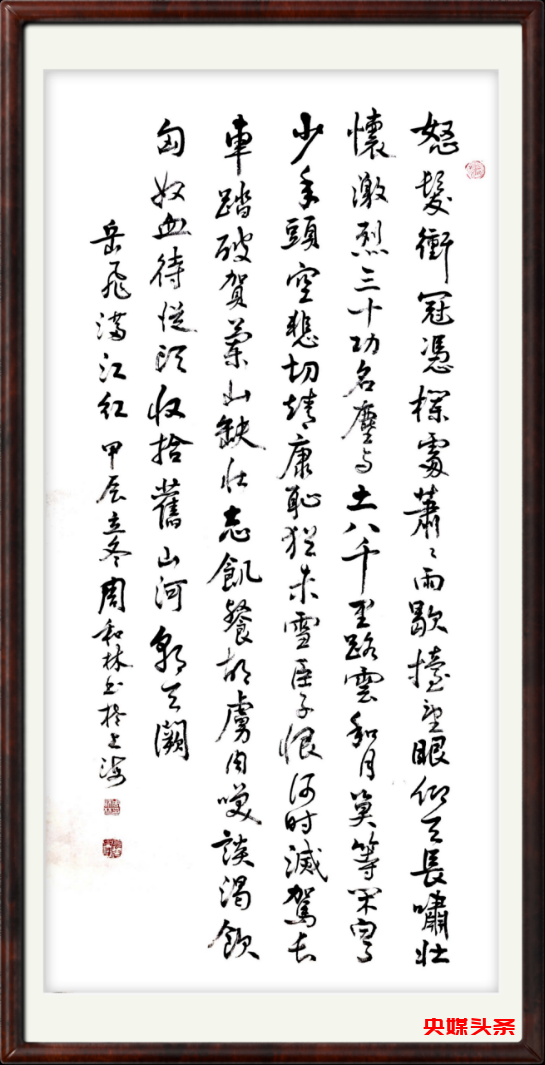 怒髮衝冠憑欄處蕭〻雨歇擡望眼仰天長嘯壯
懷激烈三十功名塵与土八千里路雲和月莫等闲白了
少年頭空悲切靖康恥猶未雪臣子恨何时滅駕长
車踏破賀蘭山缺壯志飢餐胡虜肉笑談渴飲
匈奴血待從头收拾舊山河朝天闕
岳飛滿江红 甲辰立冬周和林书於上海
央媒头条